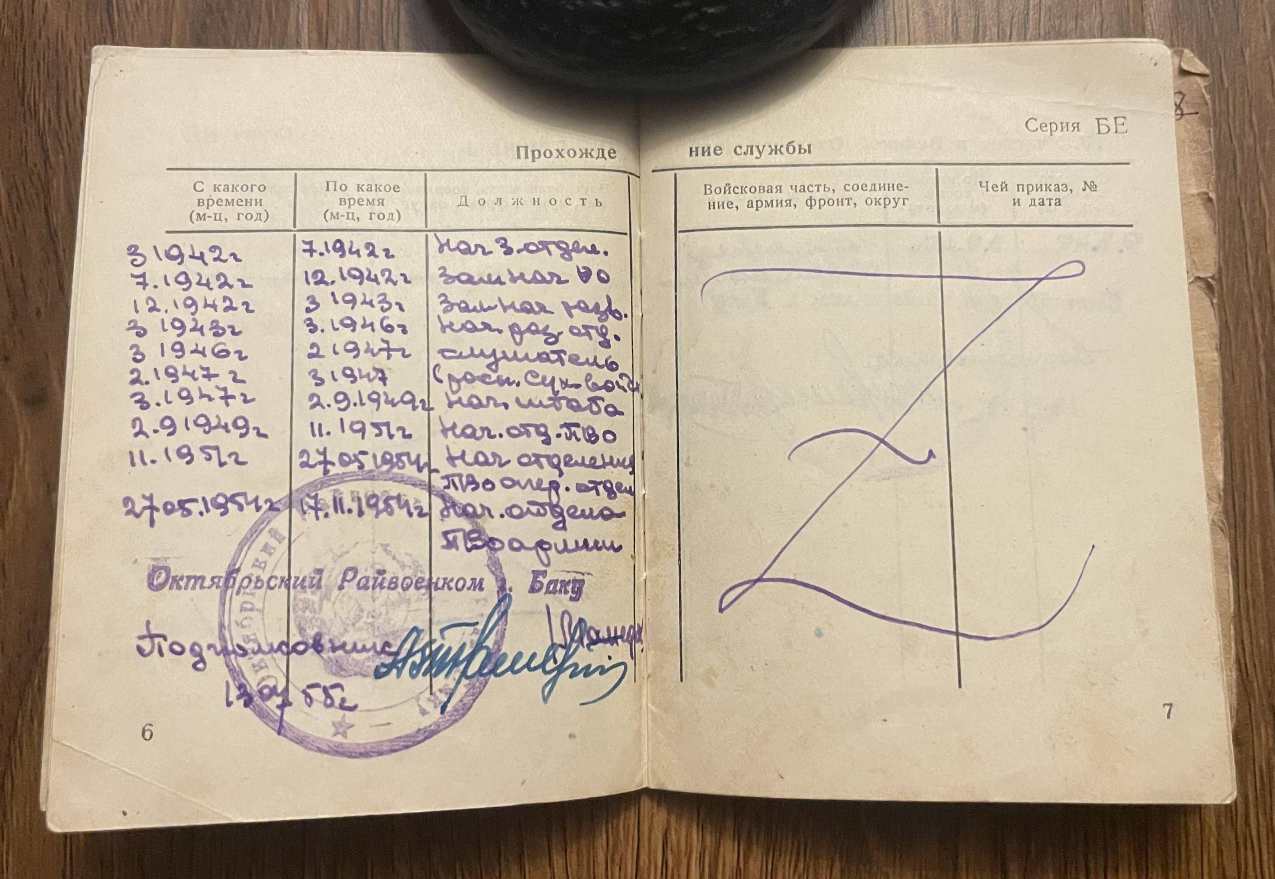 Серия БЕ
Прохожде ние службы
С какого времени (м-ц, год) По какое время (м-ц, год) Должность Войсковая часть, соедине- ние, армия, фронт, округ Чей приказ, № и дата
3 1942г 7.1942г Нач. 3. отдел.
7.1942г 12.1942г Зам нач
12.1942г 3 1943г Зам нач разв.
3 1943г 3.1946г Нач. раз. отд.
3 1946г 2 1947г слушатель
2.1947г 3 1947
3.1947г 2.9.1949г Нач. штаба
2.9 1949г 11.1951г Нач. отд. ПВО
11.1951г 27 05 1954г Нач отделения
ПВО опер. отдел
27 05.1954г 17.11.1954г Нач. отдела
ПВО армии
Октябрьский Райвоенком г. Баку
Подполковник
13 07 55г
6
7